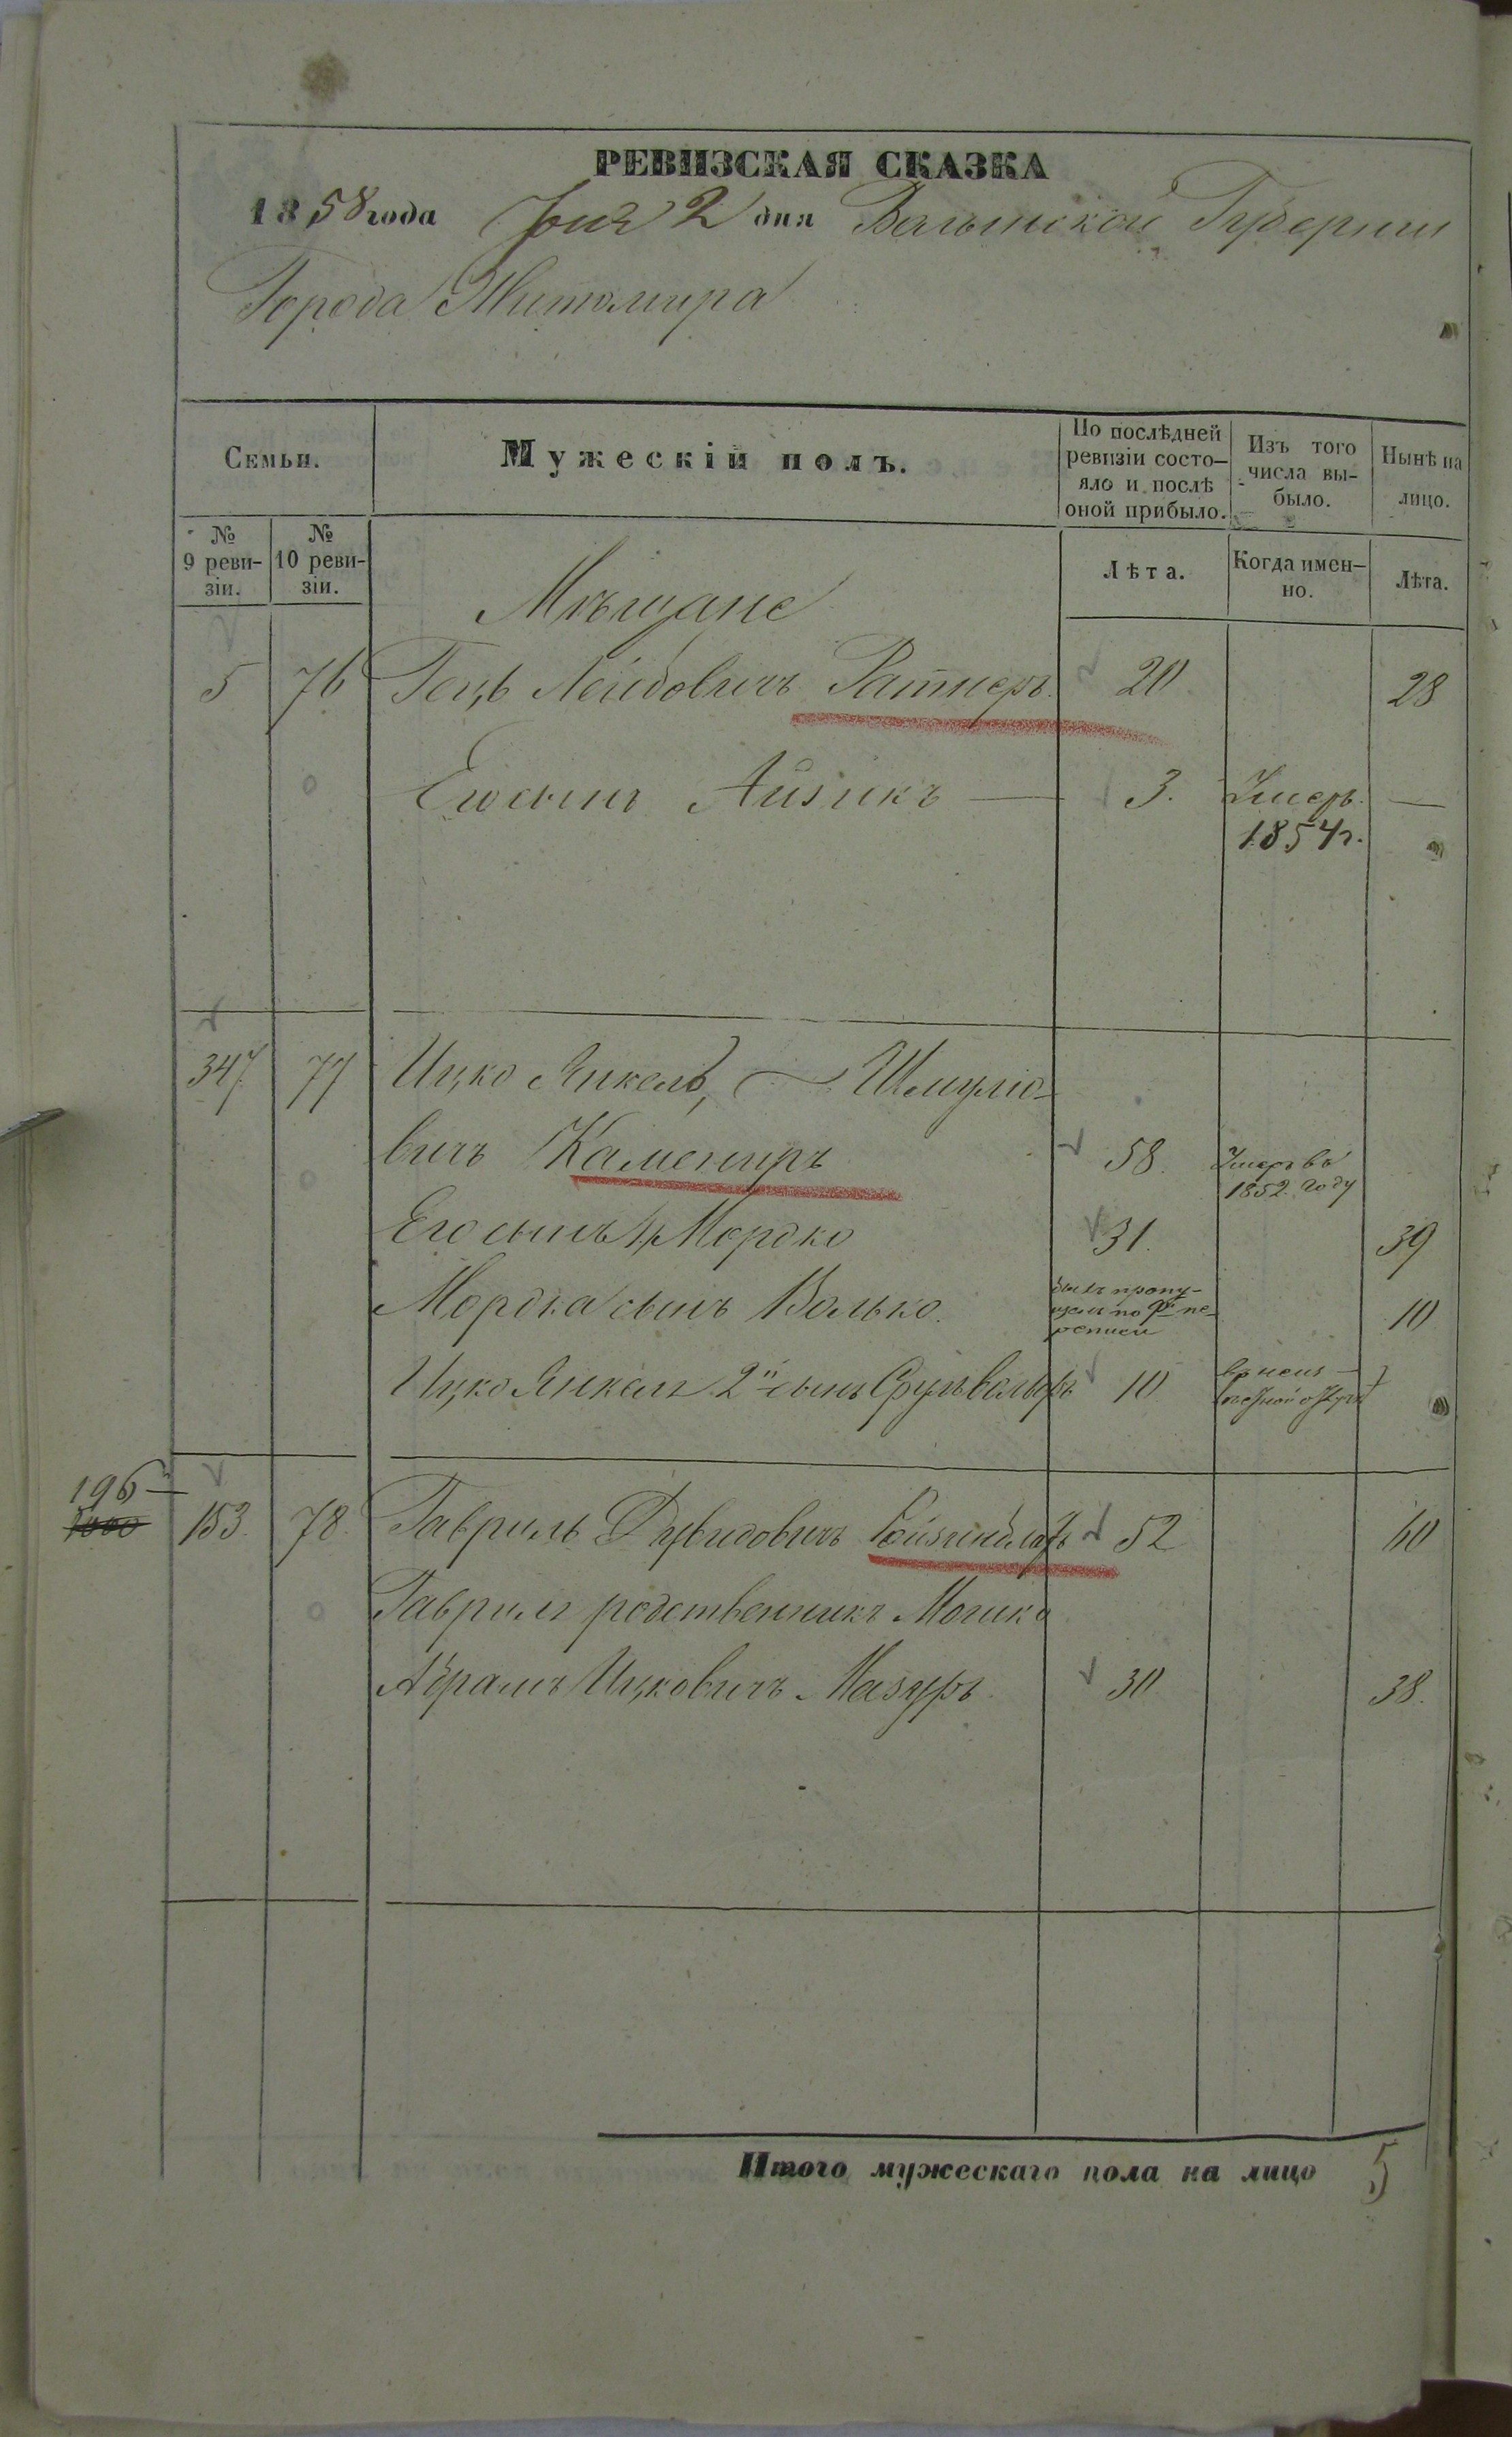 РЕВИЗСКАЯ СКАЗКА
1858 года Мая 2 дня Волынской Губернии
Города Житомира
Семьи.
Мужескій полъ.
По послѣдней ревизіи состояло и послѣ оной прибыло.
Изъ того числа выбыло.
Нынѣ на лицо.
№ 9 ревизіи.
№ 10 ревизіи.
Лѣта.
Когда именно.
Лѣта.
Мѣщане
5 76 Гецъ Лейбовичъ Ратнеръ 20 28
Его сынъ Айзикъ — 3. Умеръ 1854 г. —
347 77 Ицко Янкель, Шмулiо-
вичъ Камениръ 58. Умеръ въ 1852. году
Его сынъ 1й Мордко 31. 39
Мордка сынъ Волько. былъ пропущен по 9й переписи 10
Ицко Янкеля 2й сынъ Срульвольфъ 10
196
153. 78. Гавриль Дувидовичъ Ройзинблатъ 52 60
Гаврила родственникъ Мошко
Абрамъ Ицковичъ Мазуръ 30 38.
Итого мужескаго пола на лицо 5